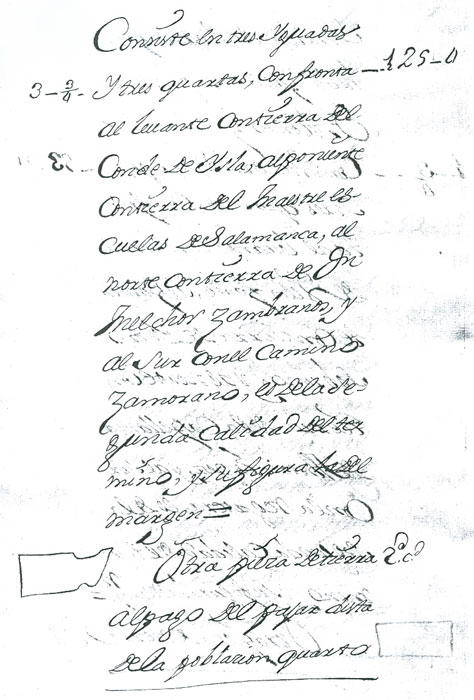 Consiste en tres Yguadas
3-3/4- Y tres quartas, Confronta - 125-0
al levante Contierra del
Conde de Ysla, alponiente
Contierra del Maestre es
cuelas de Salamanca, al
norte Contierra de Dn
Melchor Zambranos, y
al Sur Conel Camino
Zamorano, es dela se
gunda Calidad del ter
mino, y su figura la del
margen =
Otra pieza detierra 2ª cd
alpago del pajar dista
dela poblacion quarto